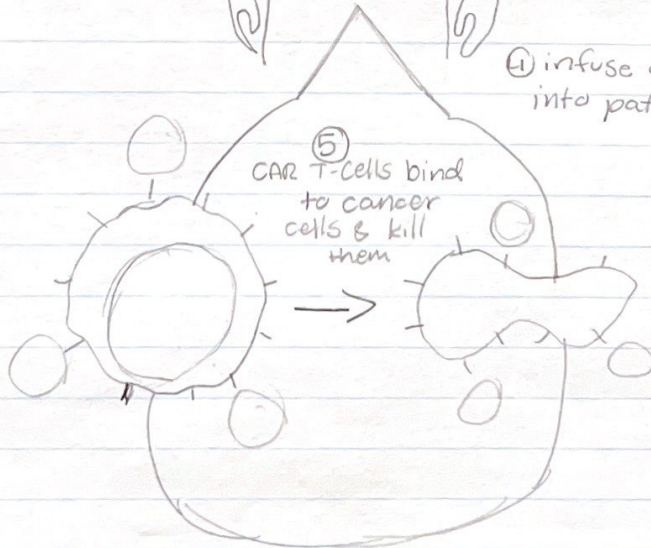 ④ infuse
into
⑤
CAR T-cells bind
to cancer
cells & kill
them